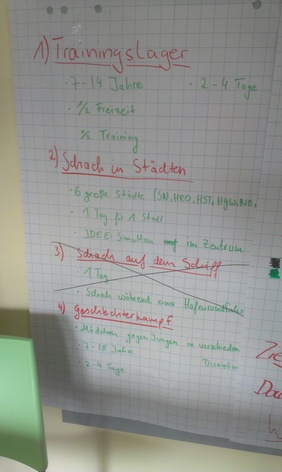 1) Trainingslager
· 7-14 Jahre · 2-4 Tage
· 1/2 Freizeit
1/2 Training
2) Schach in Städten
· 6 große Städte (SN, HRO, HST, HGW, NB,
· 1 Tag für 1 Stadt
· IDEE: Simultan auf im Zentrum
3) Schach auf dem Schiff
· 1 Tag
· Schach während einer
4) Geschlechterkampf
· Mädchen gegen Jungen in verschieden
· 7-18 Jahre
· 2-4 Tage